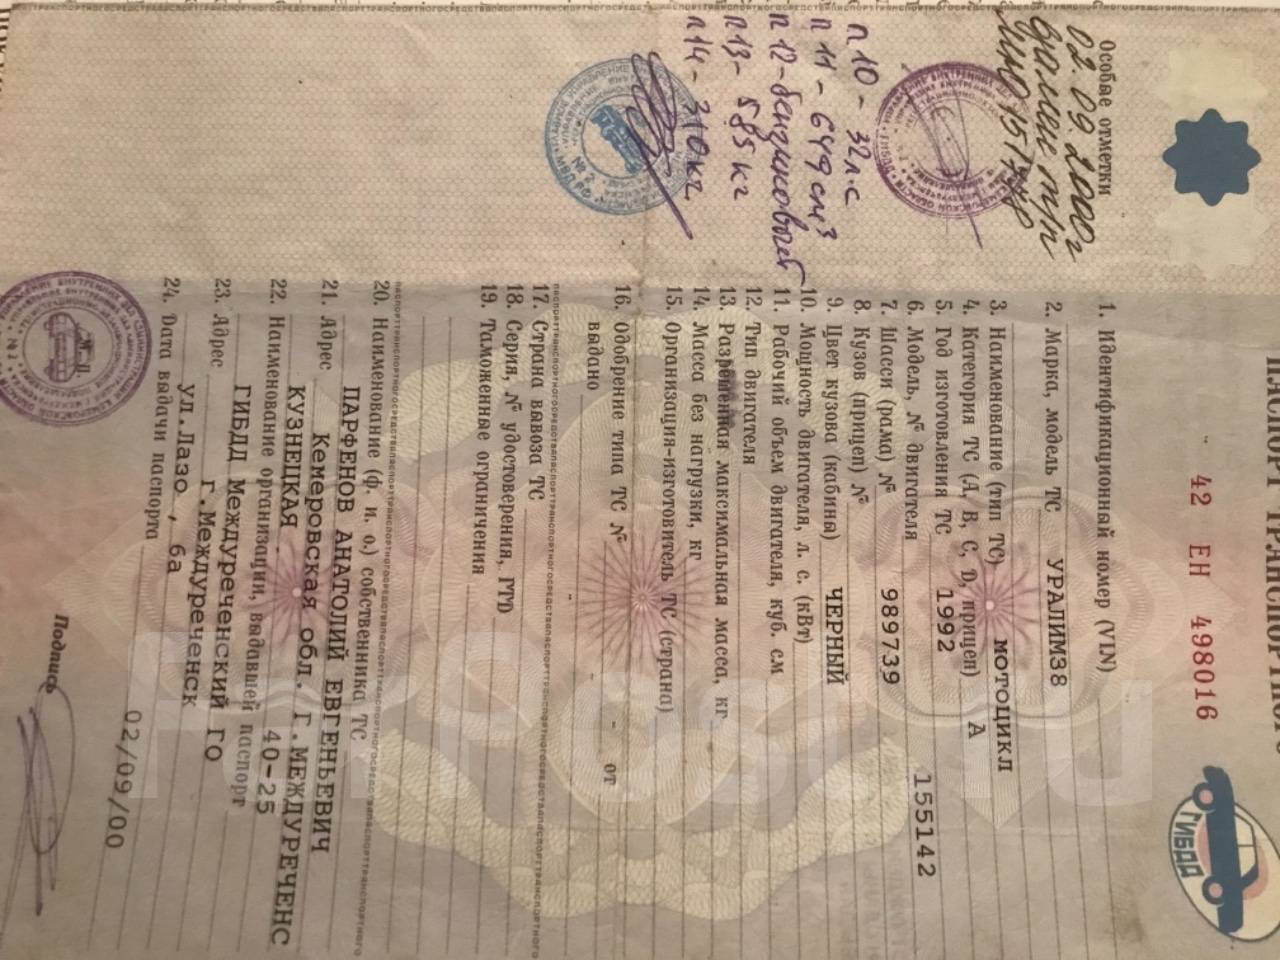 ПАСПОРТ ТРАНСПОРТНОГО
42 ЕН 498016
ГИБДД
Особые отметки
02.09.2000г
взамен т/п
п 10 - 32 л.с
п 11 - 649 см³
п 12 - бензиновый
п 13 - 585 кг
п 14 - 310 кг
1. Идентификационный номер (VIN)
2. Марка, модель ТС УРАЛИМ38
3. Наименование (тип ТС) МОТОЦИКЛ
4. Категория ТС (А, В, С, D, прицеп) А
5. Год изготовления ТС 1992
6. Модель, № двигателя 155142
7. Шасси (рама) № 989739
8. Кузов (прицеп) №
9. Цвет кузова (кабины) ЧЕРНЫЙ
10. Мощность двигателя, л. с. (кВт)
11. Рабочий объем двигателя, куб. см
12. Тип двигателя
13. Разрешенная максимальная масса, кг
14. Масса без нагрузки, кг
15. Организация-изготовитель ТС (страна)
16. Одобрение типа ТС № - - от
выдано
17. Страна вывоза ТС
18. Серия, № удостоверения, ГТД
19. Таможенные ограничения
20. Наименование (ф. и. о.) собственника ТС
ПАРФЕНОВ АНАТОЛИЙ ЕВГЕНЬЕВИЧ
21. Адрес Кемеровская обл. Г.МЕЖДУРЕЧЕНС
КУЗНЕЦКАЯ 40-25
22. Наименование организации, выдавшей паспорт
ГИБДД Междуреченский ГО
23. Адрес г.Междуреченск
ул.Лазо , 6а
24. Дата выдачи паспорта 02/09/00
Подпись